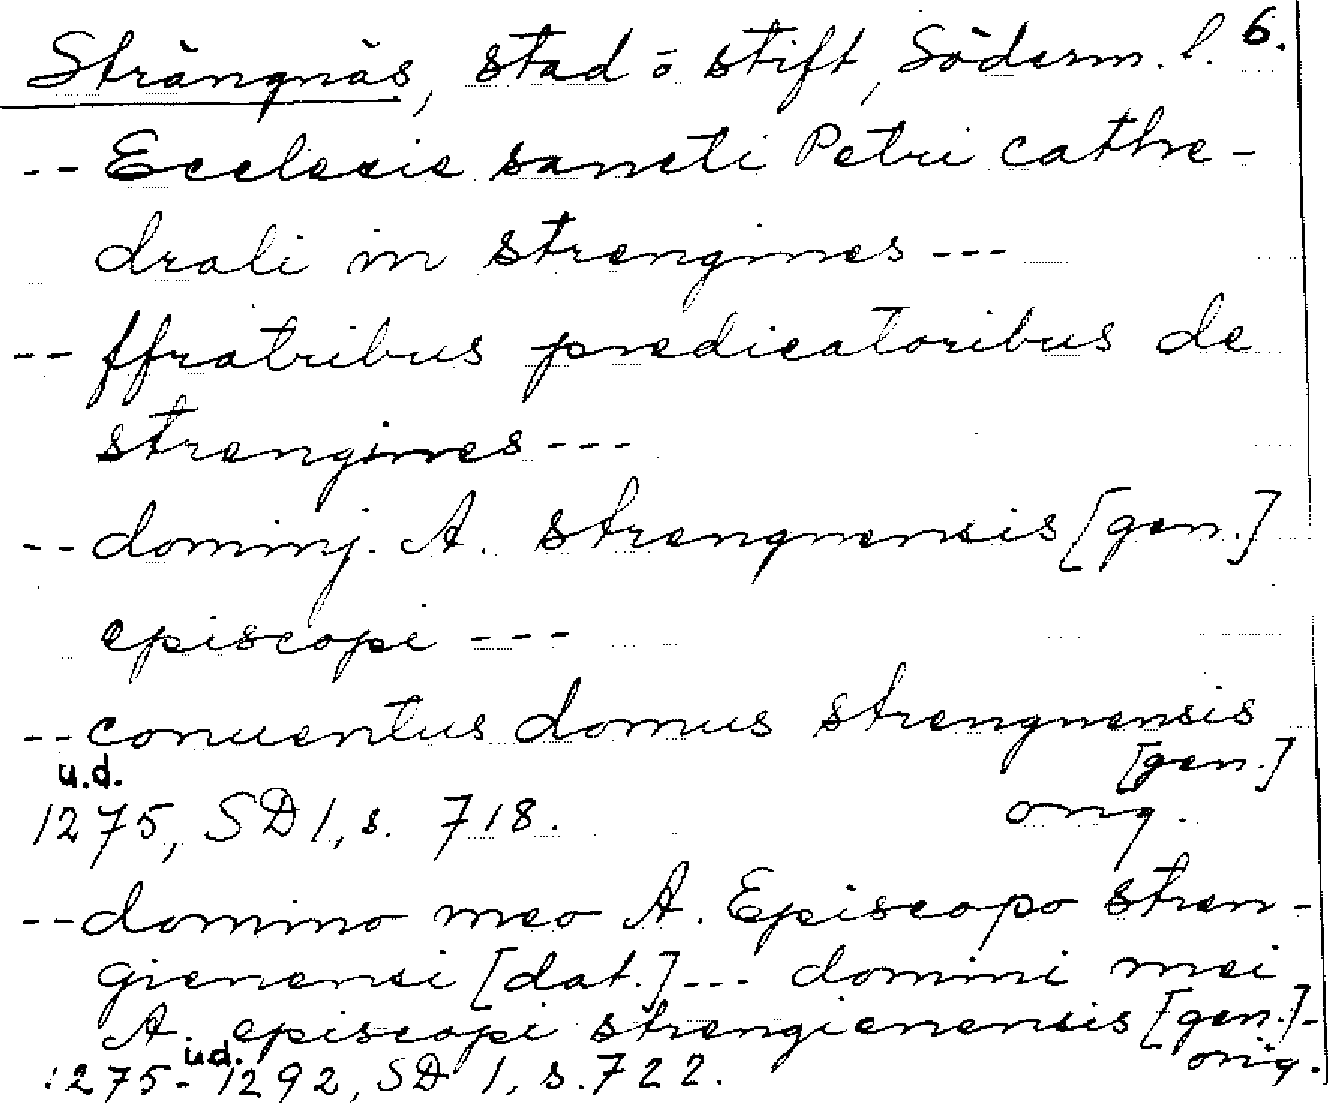 Strängnäs, stad o stift, Söderm. l. 6.
-- Ecclesie sancti Petri cathe-
drali in strengines ---
-- ffratribus predicatoribus de
strengines ---
-- dominj. A. strengnensis [gen.]
episcopi ---
-- conuentus domus strengnensis
[gen.]
u.d.
1275, SD 1, s. 718. orig.
-- domino meo A. Episcopo stren-
gienensi [dat.] --- domini mei
A. episcopi strengienensis [gen.] -
u.d. orig.
1275-1292, SD 1, s. 722.